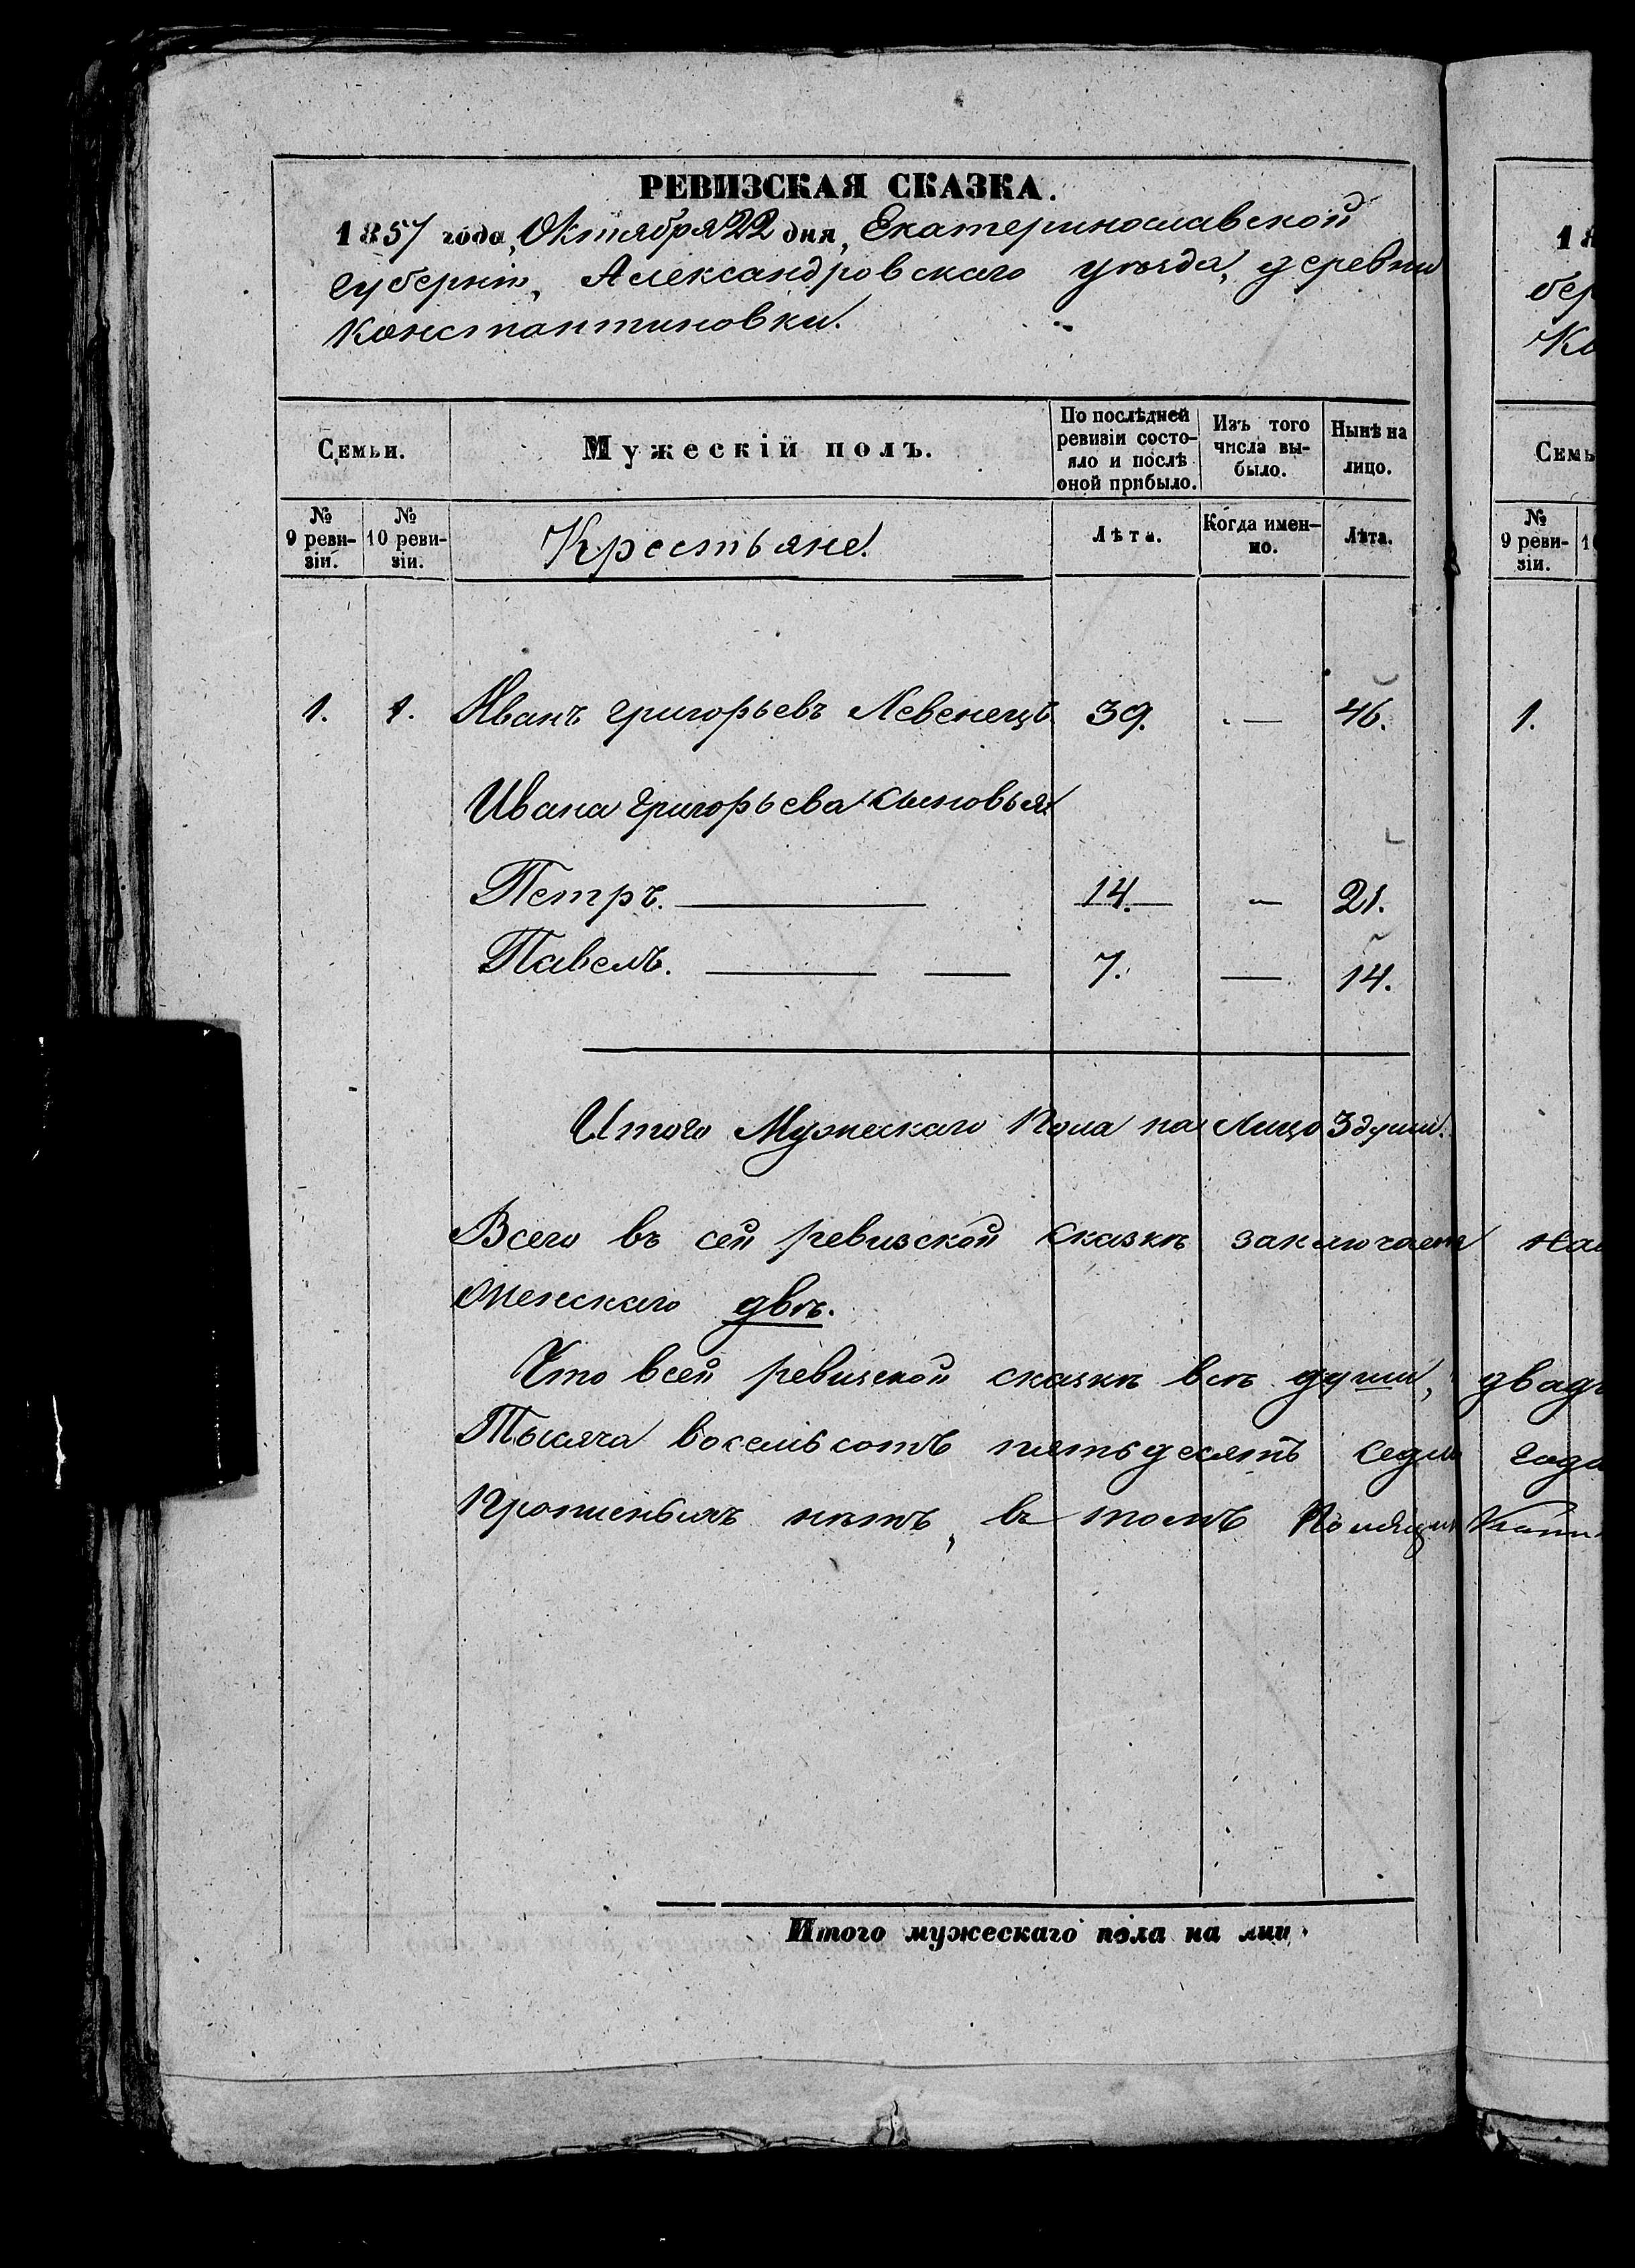 РЕВИЗСКАЯ СКАЗКА.
1857 года, Октября 22 дня, Екатеринославской
губерніи, Александровскаго уѣзда, деревни
Константиновки.
Семьи.
Мужескій полъ.
По послѣдней
ревизіи состо-
яло и послѣ
оной прибыло.
Изъ того
числа вы-
было.
Нынѣ на
лицо.
№
9 реви-
зіи.
№
10 реви-
зіи.
Крестьяне.
Лѣта.
Когда имен-
но.
Лѣта.
1. 1. Иванъ Григорьевъ Левенецъ 39. — 46.
Ивана Григорьева сыновья:
Петръ. 14. — 21.
Павелъ. 7. — 14.
Итого Мужескаго Пола на Лицо 3 души.
Всего въ сей ревизской сказкѣ заключается
Женскаго двѣ.
Что всей ревизской сказкѣ всѣ души,
Тысяча восемьсотъ пятьдесятъ седьм
нѣтъ, въ томъ
Итого мужескаго пола на лиц
18
бер
Ко
Семь
№
9 реви-
зіи.
1
1.
на
двадц
года